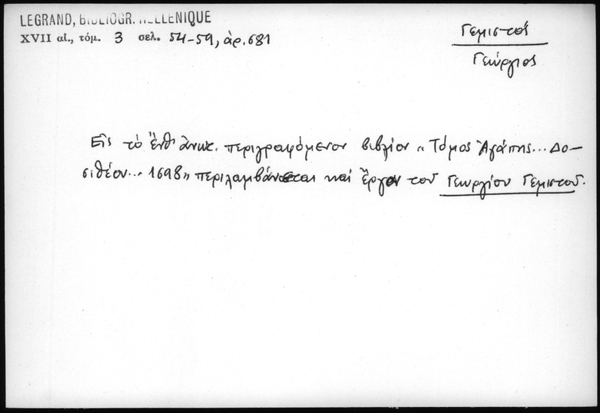 LEGRAND, BIBLIOGR. HELLENIQUE
XVII αἰ., τόμ. 3 σελ. 54-59, ἀρ. 681
Γεμιστός
Γεώργιος
Εἰς τὸ ἔνθ' ἀνωτ. περιγραφόμενον βιβλίον "Τόμος Ἀγάπης... Δο-
σιθέου... 1698" περιλαμβάνεται καὶ ἔργον τοῦ Γεωργίου Γεμιστοῦ.